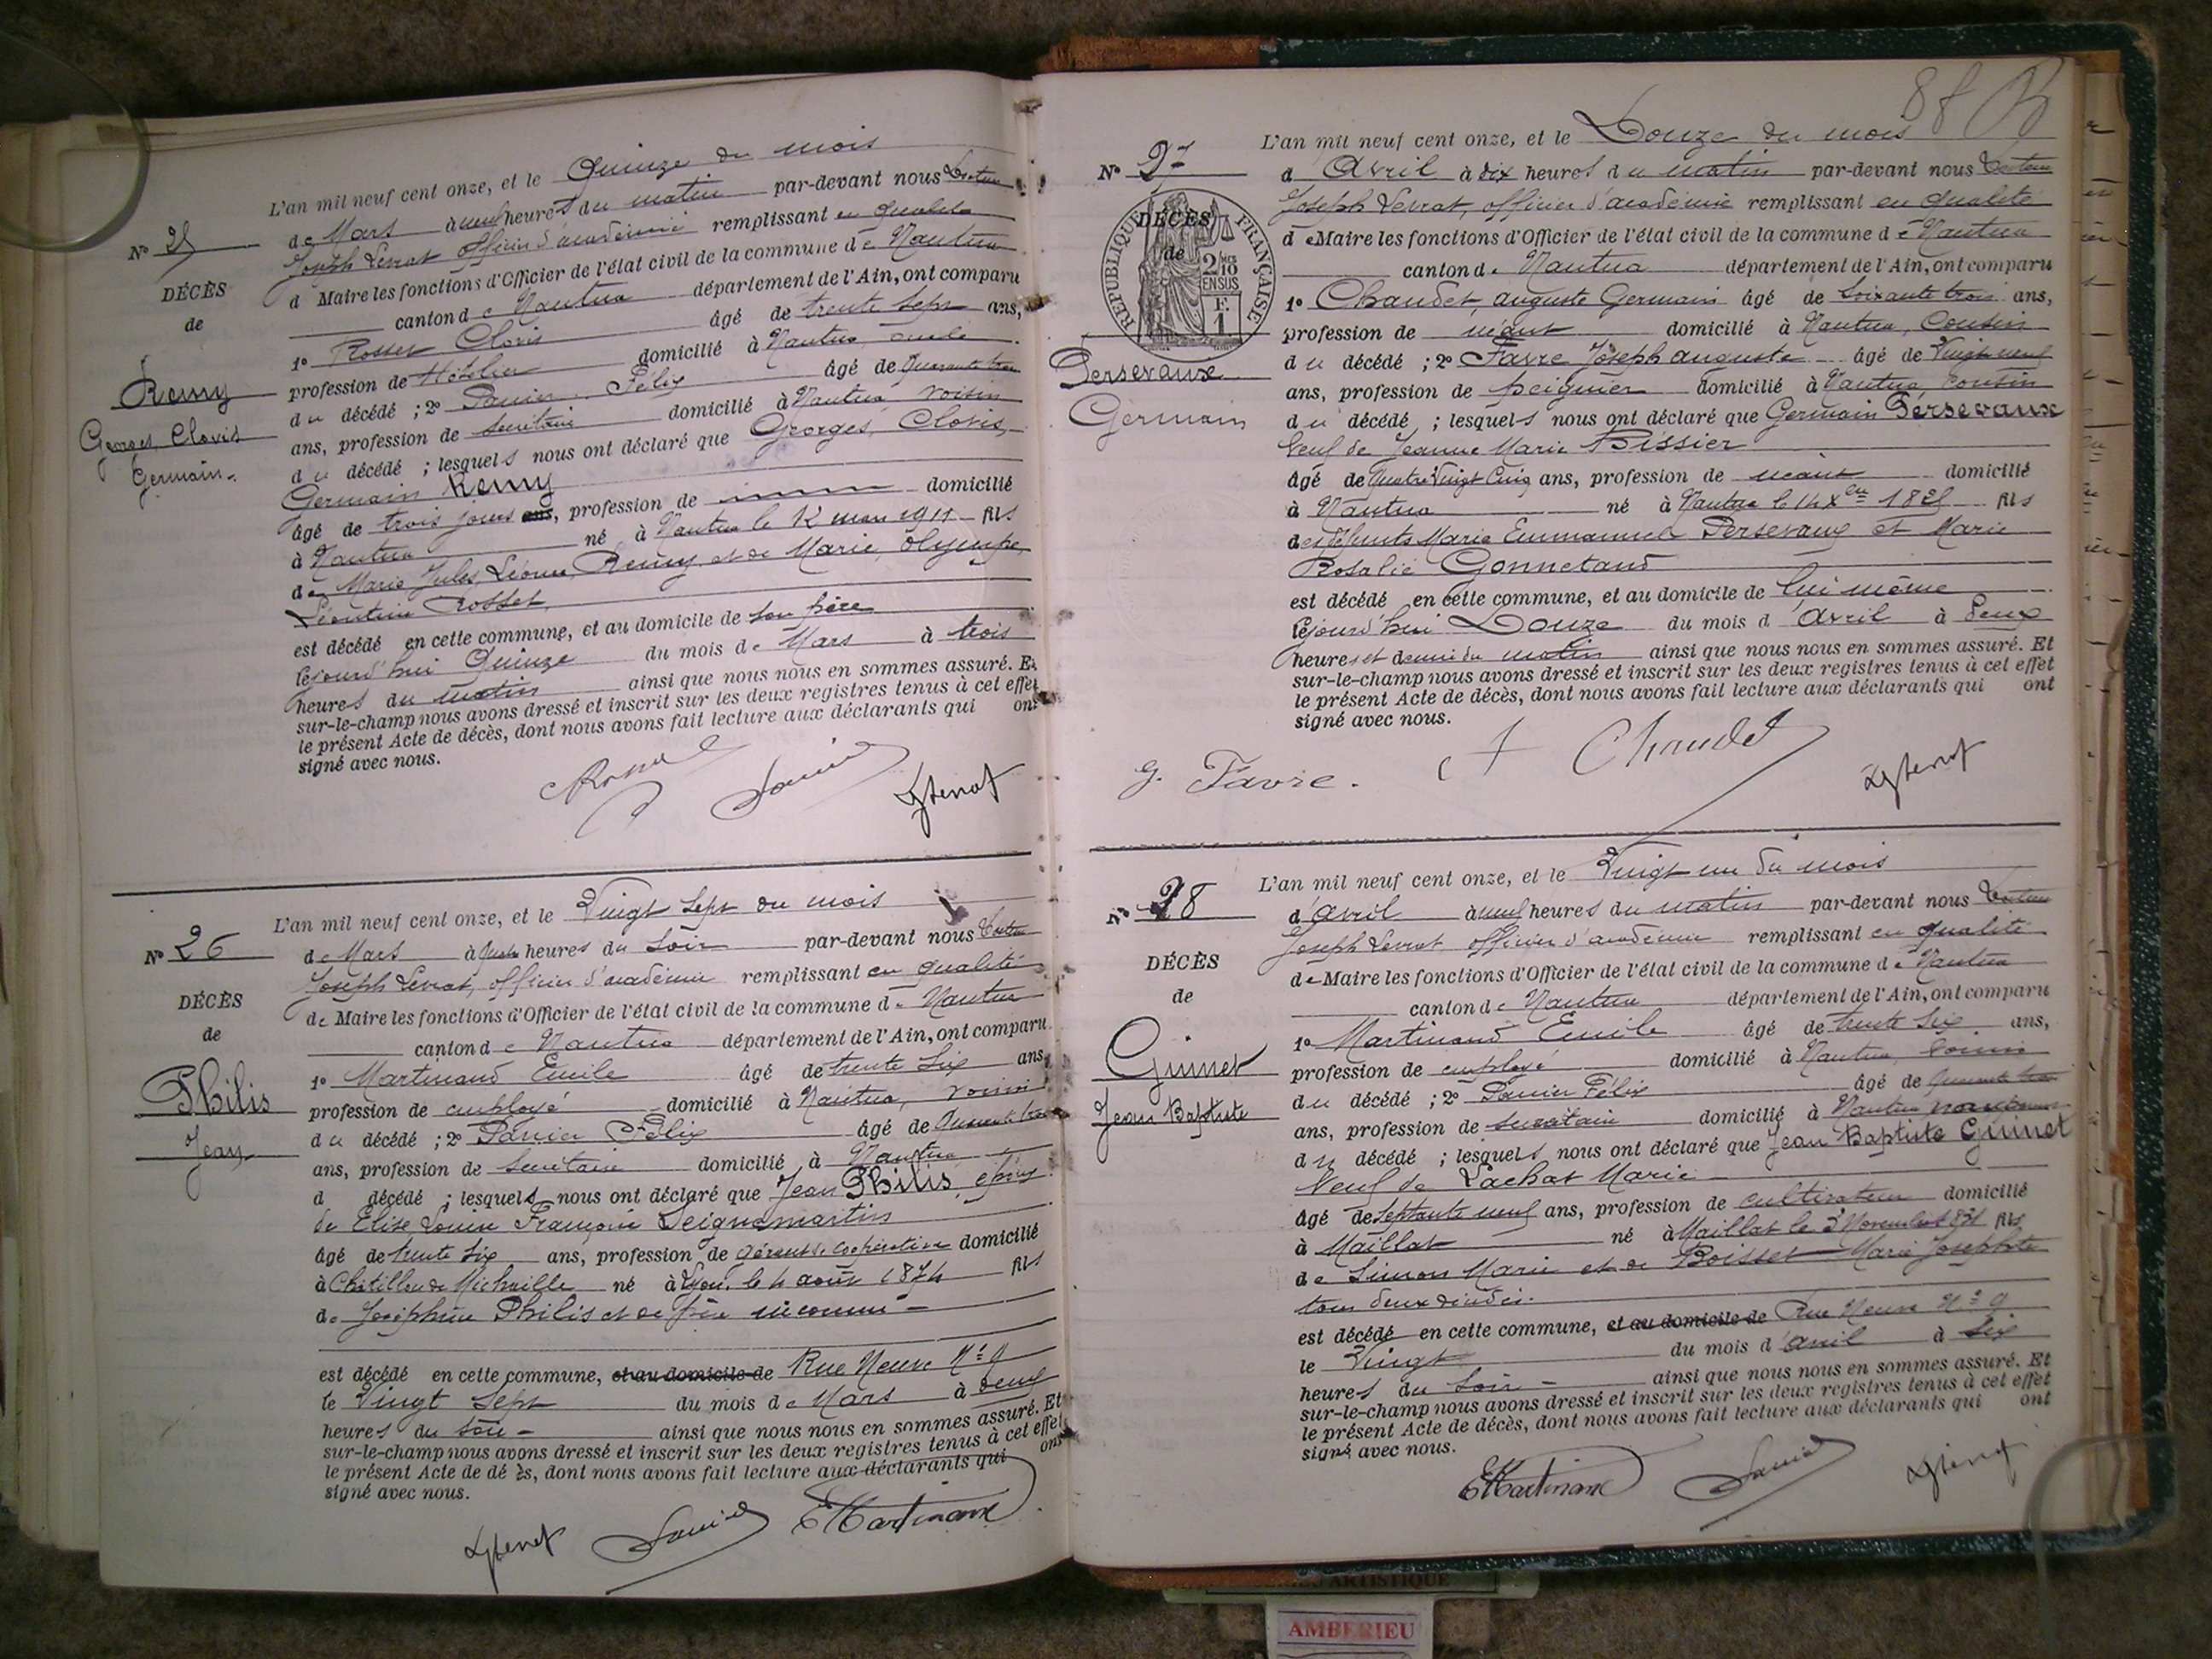 L'an mil neuf cent onze, et le Quinze du mois
de Mars à neuf heures du matin par-devant nous Docteur
Joseph Levrat officier d'académie remplissant en qualité
d Maire les fonctions d'Officier de l'état civil de la commune de Nantua
canton de Nantua département de l'Ain, ont comparu
1° Rosset Clovis âgé de trente sept ans,
profession de Hôtelier domicilié à Nantua, oncle
du décédé ; 2° Panier Félix âgé de Quarante trois
ans, profession de Secrétaire domicilié à Nantua voisin
du décédé ; lesquels nous ont déclaré que Georges, Clovis,
Germain Remy
âgé de trois jours ans, profession de domicilié
à Nantua né à Nantua le 12 mars 1911 fils
de Marie Jules, Léonce, Remy et de Marie, Olympe,
Léontine Rosset
est décédé en cette commune, et au domicile de son père
cejourd'hui Quinze du mois de Mars à trois
heures du matin ainsi que nous nous en sommes assuré. Et
sur-le-champ nous avons dressé et inscrit sur les deux registres tenus à cet effet
le présent Acte de décès, dont nous avons fait lecture aux déclarants qui ont
signé avec nous.
N° 25
DÉCÈS
de
Remy
Georges, Clovis
Germain.
L'an mil neuf cent onze, et le Vingt sept du mois
de Mars à quatre heures du soir par-devant nous Docteur
Joseph Levrat, officier d'académie remplissant en qualité
de Maire les fonctions d'Officier de l'état civil de la commune de Nantua
canton de Nantua département de l'Ain, ont comparu
1° Martinand Emile âgé de trente six ans,
profession de employé domicilié à Nantua, voisin
du décédé ; 2° Panier Félix âgé de Quarante trois
ans, profession de Secrétaire domicilié à Nantua
d décédé ; lesquels nous ont déclaré que Jean Philis, époux
de Elise Louise Françoise Seignemartin
âgé de trente six ans, profession de Gérant de coopérative domicilié
à Châtillon de Michaille né à Lyon, le 4 août 1874 fils
de Joséphine Philis et de père inconnu
est décédé en cette commune, et au domicile de Rue Neuve N° 9
le Vingt Sept du mois de Mars à deux
heures du soir ainsi que nous nous en sommes assuré. Et
sur-le-champ nous avons dressé et inscrit sur les deux registres tenus à cet effet
le présent Acte de dé ès, dont nous avons fait lecture aux déclarants qui ont
signé avec nous.
EMartinand
N° 26
DÉCÈS
de
Philis
Jean
L'an mil neuf cent onze, et le Douze du mois
d'Avril à dix heures du matin par-devant nous Docteur
Joseph Levrat, officier d'académie remplissant en qualité
de Maire les fonctions d'Officier de l'état civil de la commune de Nantua
canton de Nantua département de l'Ain, ont comparu
1° Chaudet, auguste Germain âgé de soixante trois ans,
profession de néant domicilié à Nantua, Cousin
du décédé ; 2° Favre Joseph auguste âgé de Vingt neuf
ans, profession de peignier domicilié à Nantua, cousin
du décédé ; lesquels nous ont déclaré que Germain Persevaux
Veuf de Jeanne Marie Bissier
âgé de Quatre Vingt Cinq ans, profession de néant domicilié
à Nantua né à Nantua le 14 Xbre 1825 fils
des défunts Marie Emmanuel Persevaux et Marie
Rosalie Gonnetand
est décédé en cette commune, et au domicile de lui même
cejourd'hui Douze du mois d'Avril à deux
heures et demie du matin ainsi que nous nous en sommes assuré. Et
sur-le-champ nous avons dressé et inscrit sur les deux registres tenus à cet effet
le présent Acte de décès, dont nous avons fait lecture aux déclarants qui ont
signé avec nous.
G. Favre. Chaudet
N° 27
RÉPUBLIQUE FRANÇAISE
DÉCÈS
de
2/10 EN SUS
F. 1
Persevaux
Germain
L'an mil neuf cent onze, et le Vingt un du mois
d'avril à neuf heures du matin par-devant nous Docteur
Joseph Levrat officier d'académie remplissant en qualité
de Maire les fonctions d'Officier de l'état civil de la commune de Nantua
canton de Nantua département de l'Ain, ont comparu
1° Martinand Emile âgé de trente six ans,
profession de employé domicilié à Nantua, voisin
du décédé ; 2° Panier Félix âgé de Quarante trois
ans, profession de secrétaire domicilié à Nantua
du décédé ; lesquels nous ont déclaré que Jean Baptiste Guinet
Veuf de Lachat Marie
âgé de Septante neuf ans, profession de cultivateur domicilié
à Maillat né à Maillat le 3 Novembre 1831 fils
de Simon Marie et de Boisset Marie Josephte
tous deux décédés.
est décédé en cette commune, et au domicile de Rue Neuve N° 9
le Vingt du mois d'avril à six
heures du soir ainsi que nous nous en sommes assuré. Et
sur-le-champ nous avons dressé et inscrit sur les deux registres tenus à cet effet
le présent Acte de décès, dont nous avons fait lecture aux déclarants qui ont
signé avec nous.
EMartinand
N° 28
DÉCÈS
de
Guinet
Jean Baptiste
ARTISTIQUE
AMBERIEU